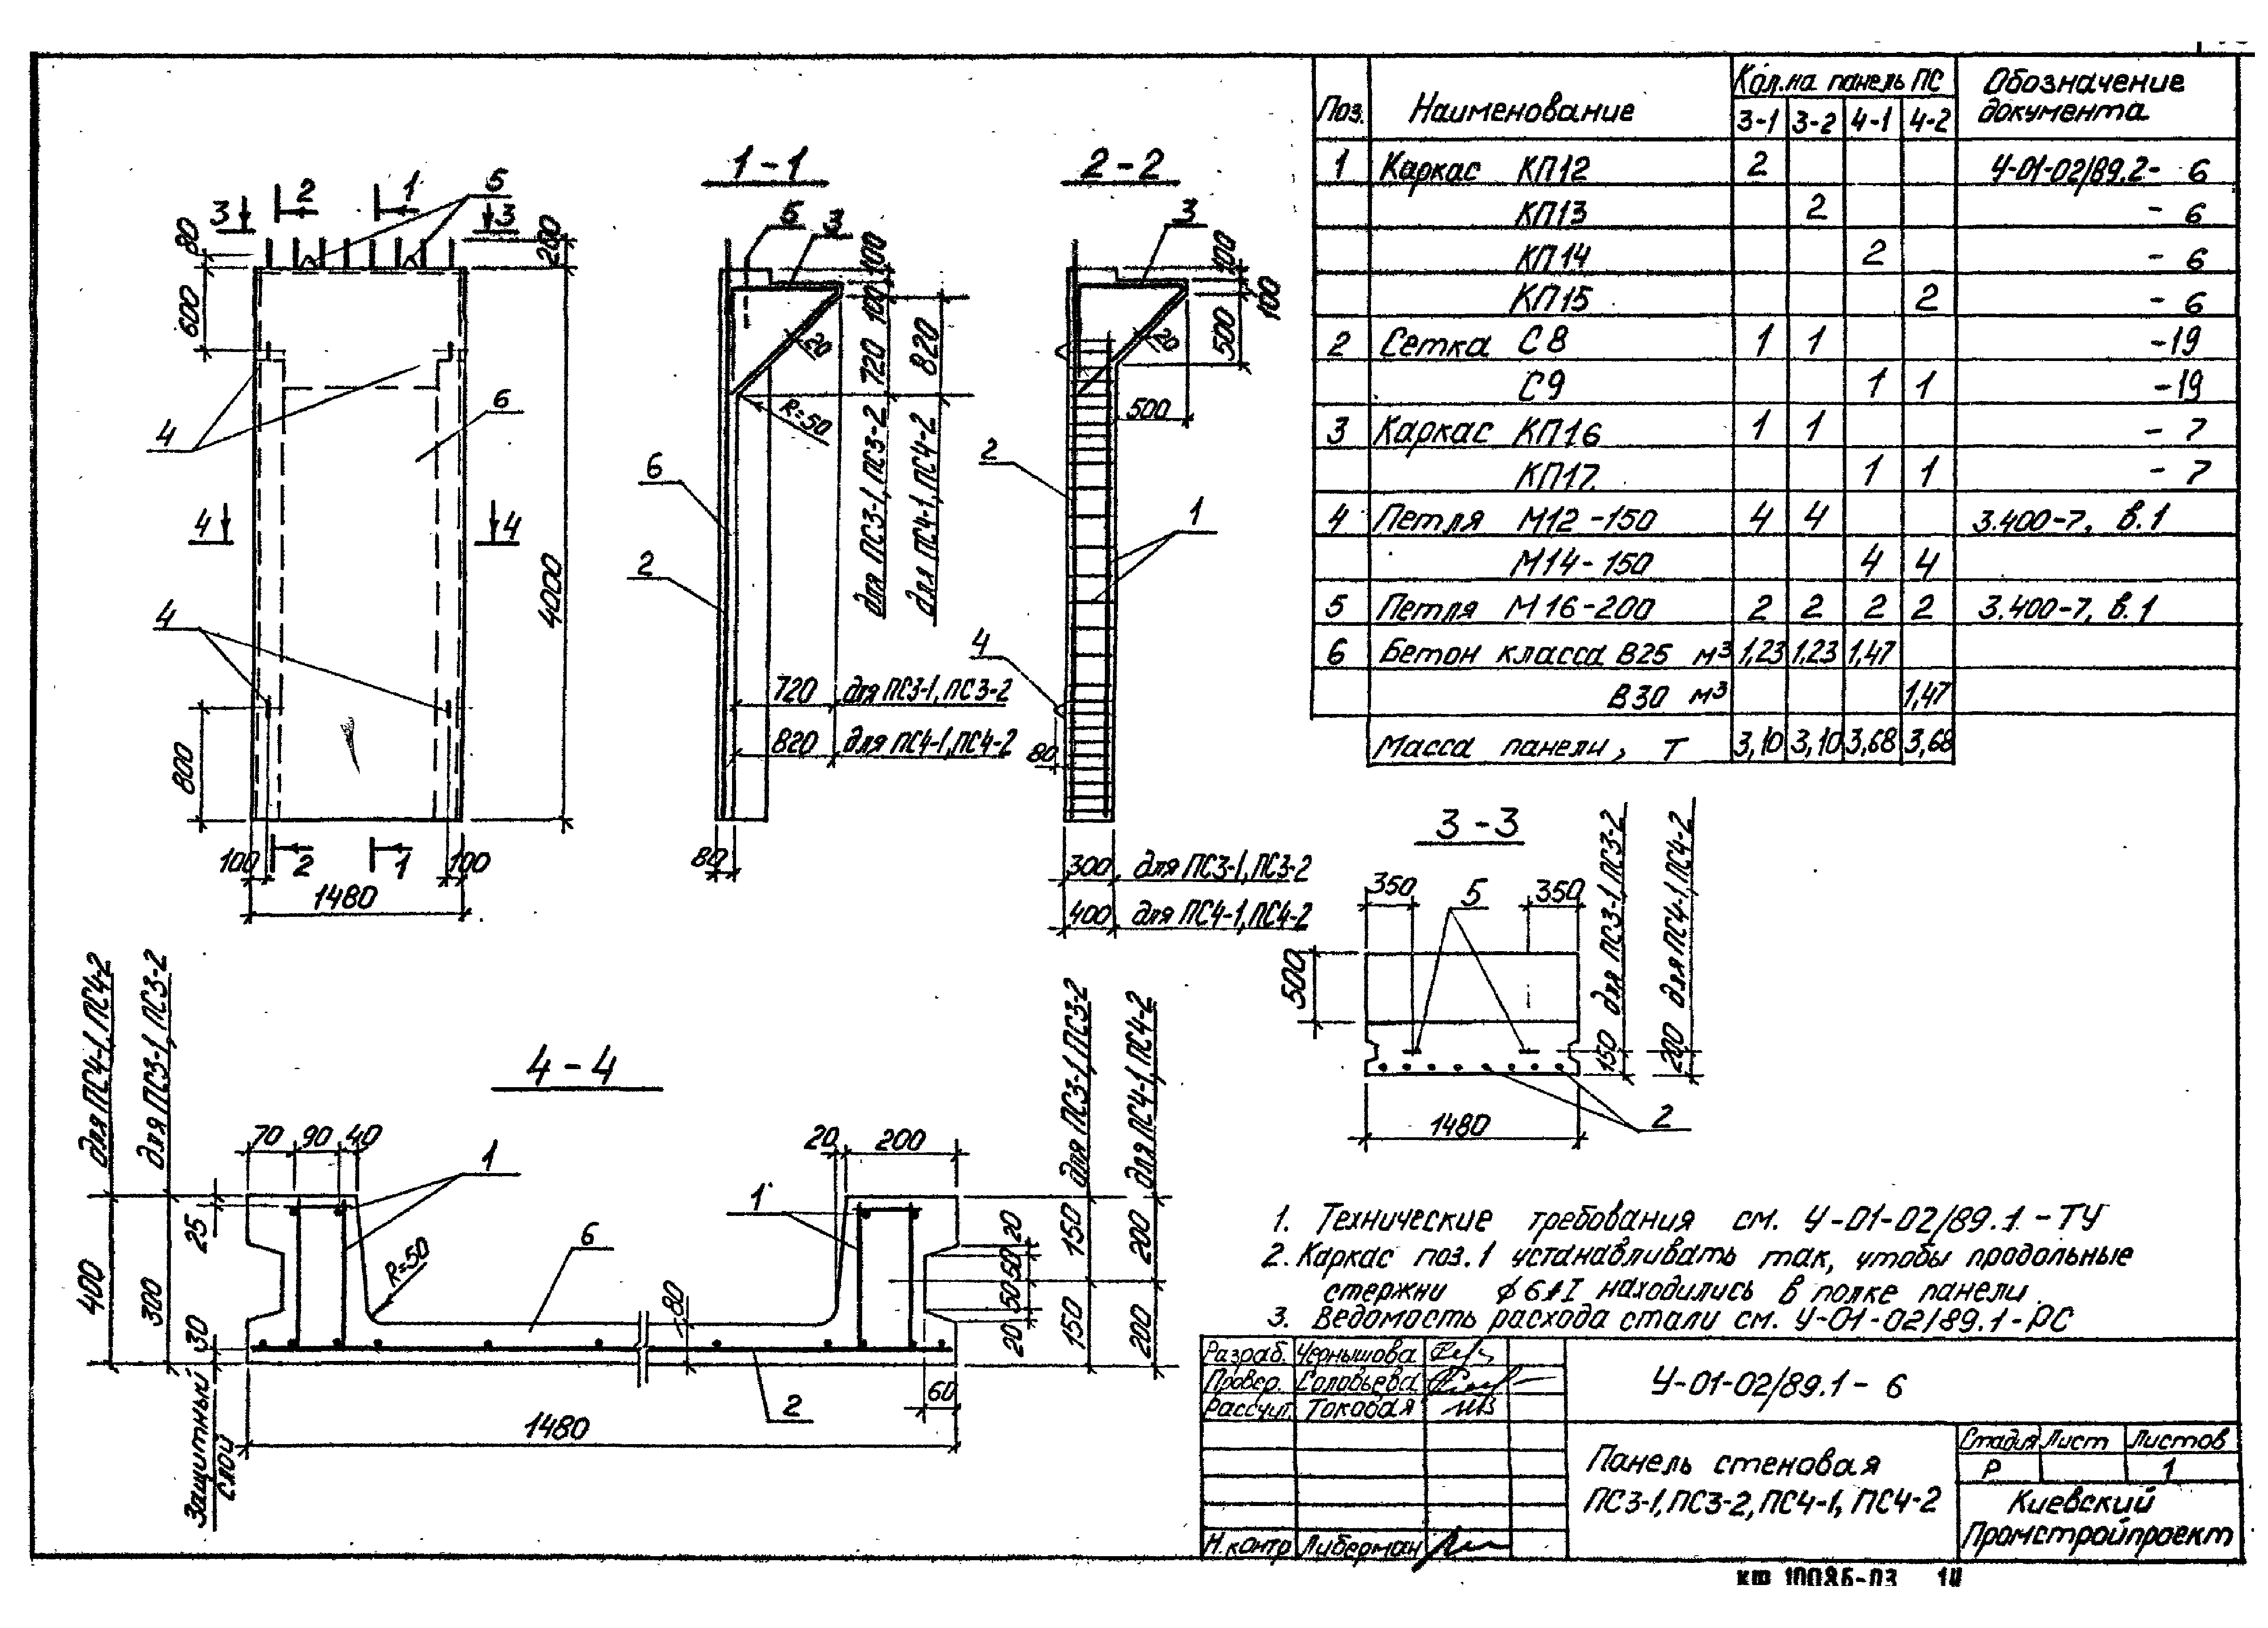 1-1
2-2
2
1
5
3
3
80
600
200
4
6
4
4
4
4000
4
800
100
2
1
100
1480
5
3
100
100
720
820
20
R=50
для ПС3-1, ПС3-2
для ПС4-1, ПС4-2
6
2
720 для ПС3-1, ПС3-2
820 для ПС4-1, ПС4-2
80
3
100
100
500
20
500
2
1
4
80
300 для ПС3-1, ПС3-2
400 для ПС4-1, ПС4-2
Поз.
Наименование
Кол. на панель ПС
Обозначение документа
3-1 3-2 4-1 4-2
1 Каркас КП12 2 У-01-02/89.2- 6
КП13 2 - 6
КП14 2 - 6
КП15 2 - 6
2 Сетка С8 1 1 -19
С9 1 1 -19
3 Каркас КП16 1 1 - 7
КП17 1 1 - 7
4 Петля М12-150 4 4 3.400-7, в.1
М14-150 4 4
5 Петля М16-200 2 2 2 2 3.400-7, в.1
6 Бетон класса В25 м³ 1,23 1,23 1,47
В30 м³ 1,47
Масса панели, т 3,10 3,10 3,68 3,68
3-3
350
5
350
500
150 для ПС3-1, ПС3-2
200 для ПС4-1, ПС4-2
1480
2
4-4
для ПС4-1, ПС4-2
для ПС3-1, ПС3-2
70 90 40
1
20 200
1
25
400
300
30
Защитный слой
R=50
6
80
2
1480
60
20
50
50
20
150
150
200
200
для ПС3-1, ПС3-2
для ПС4-1, ПС4-2
1. Технические требования см. У-01-02/89.1-ТУ
2. Каркас поз.1 устанавливать так, чтобы продольные
стержни ϕ6АI находились в полке панели.
3. Ведомость расхода стали см. У-01-02/89.1-РС
Разраб. Чернышова
Провер. Соловьева
Рассчит. Токовая
Н.контр Либерман
У-01-02/89.1- 6
Панель стеновая
ПС3-1, ПС3-2, ПС4-1, ПС4-2
Стадия Лист Листов
Р 1
Киевский
Промстройпроект
КФ 10086-03 14